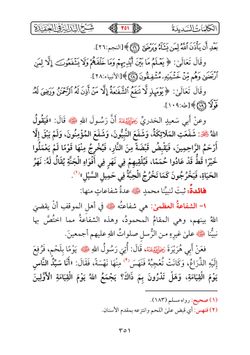 الكلمات السديدة ٣٥١ شرح البداية في العقيدة
بَعْدِ أَن يَأْذَنَ ٱللَّهُ لِمَن يَشَآءُ وَيَرْضَىٰٓ ﴾ [النجم:٢٦].
وقال تعالى: ﴿ يَعْلَمُ مَا بَيْنَ أَيْدِيهِمْ وَمَا خَلْفَهُمْ وَلَا يَشْفَعُونَ إِلَّا لِمَنِ
ٱرْتَضَىٰ وَهُم مِّنْ خَشْيَتِهِۦ مُشْفِقُونَ ﴾ [الأنبياء:٢٨].
وقال تعالى: ﴿ يَوْمَئِذٍ لَّا تَنفَعُ ٱلشَّفَٰعَةُ إِلَّا مَنْ أَذِنَ لَهُ ٱلرَّحْمَٰنُ وَرَضِىَ لَهُۥ
قَوْلًا ﴾ [طه:١٠٩].
وعن أبي سعيد الخدري أن رسول الله ﷺ قال: «فَيَقُولُ
اللهُ: شَفَعَتِ المَلَائِكَةُ، وَشَفَعَ النَّبِيُّونَ، وَشَفَعَ المُؤْمِنُونَ، وَلَمْ يَبْقَ إِلَّا
أَرْحَمُ الرَّاحِمِينَ، فَيَقْبِضُ قَبْضَةً مِنَ النَّارِ، فَيُخْرِجُ مِنْهَا قَوْمًا لَمْ يَعْمَلُوا
خَيْرًا قَطُّ قَدْ عَادُوا حُمَمًا، فَيُلْقِيهِمْ فِي نَهَرٍ فِي أَفْوَاهِ الجَنَّةِ يُقَالُ لَهُ: نَهَرُ
الحَيَاةِ، فَيَخْرُجُونَ كَمَا تَخْرُجُ الحِبَّةُ فِي حَمِيلِ السَّيْلِ»(١).
فائدة: ثبت لنبينا محمد ﷺ عدة شفاعات منها:
١- الشفاعة العظمى: هي شفاعته ﷺ في أهل الموقف أنْ يقضيَ
اللهُ بينهم، وهي المقام المحمود، وهذه الشفاعة مما اختصَّ بها
نبيُّنا ﷺ على غيره من الرسل صلوات الله عليهم أجمعين.
فعن أبي هريرة، قال: أُتي رسول الله ﷺ يومًا بلحم، فرُفِعَ
إليه الذِّراعُ، وكانت تُعجبه فنَهَسَ(٢) منها نَهْسَةً، فقال: «أَنَا سَيِّدُ النَّاسِ
يَوْمَ القِيَامَةِ، وَهَلْ تَدْرُونَ بِمَ ذَاكَ؟ يَجْمَعُ اللهُ يَوْمَ القِيَامَةِ الأَوَّلِينَ
(١) صحيح: رواه مسلم (١٨٣).
(٢) فنهس: أي قبض على اللحم وانتزعه بمقدم الأسنان.
٣٥١